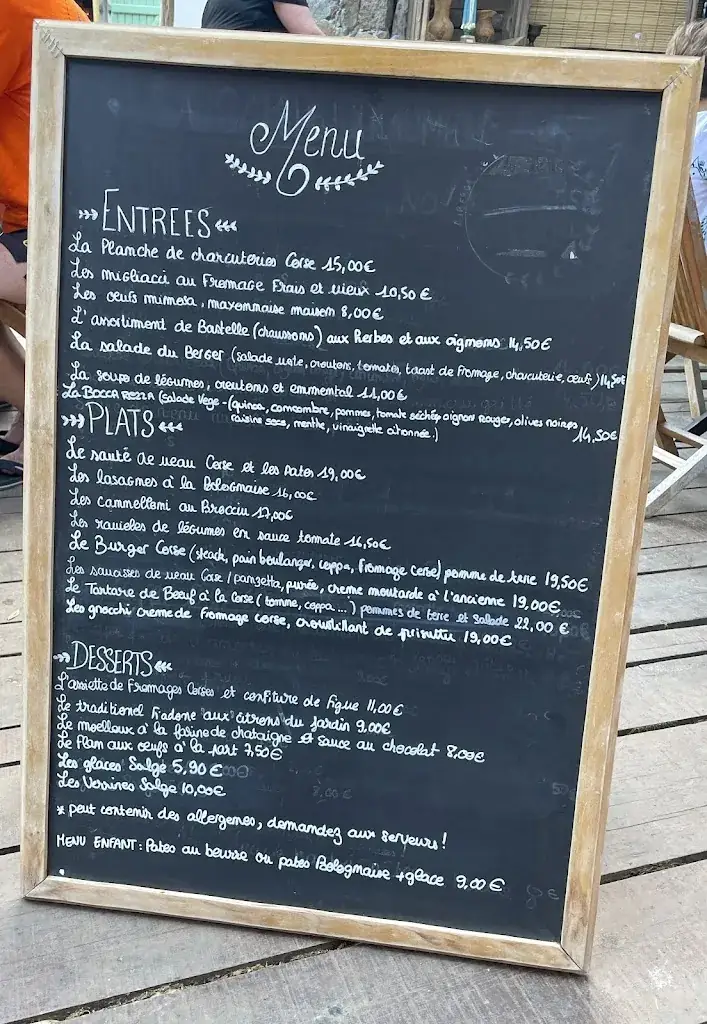 Menu
ENTREES
La Planche de charcuteries Corse 15,00€
Les migliacci au Fromage Frais et vieux 10,50€
Les oeufs mimosa, mayonnaise maison 8,00€
L'assortiment de Bastelle (chaussons) aux Herbes et aux oignons 14,50€
La salade du Berger (salade verte, croutons, tomates, toast de fromage, charcuterie, oeuf.) 14,50€
La soupe de légumes, croutons et emmental 11,00€
La BOCCA REZZA (salade Vege-(quinoa, concombre, pommes, tomate séchée, oignon Rouge, olives noires
raisins secs, menthe, vinaigrette citronnée.) 14,50€
PLATS
Le sauté de veau Corse et les pates 19,00€
Les lasagnes à la Bolognaise 16,00€
Les cannelloni au Brocciu 17,00€
Les ravioles de légumes en sauce tomate 16,50€
Le Burger Corse (steack, pain boulanger, coppa, fromage corse) pomme de terre 19,50€
Les saucisses de veau Corse / panzetta, purée, creme moutarde à l'ancienne 19,00€
Le Tartare de Bœuf à la Corse (tomme, coppa ...) pommes de terre et salade 22,00 €
Les gnocchi creme de fromage corse, croustillant de prisuttu 19,00€
DESSERTS
L'assiette de Fromages Corses et confiture de figue 11,00€
Le traditionel Fiadone aux citrons du jardin 9,00€
Le moelleux à la farine de chataigne et sauce au chocolat 8,00€
Le Flan aux oeufs à la part 7,50€
Les glaces Salge 5,90€
Les Verrines Salge 10,00€
* peut contenir des allergenes, demandez aux serveurs!
MENU ENFANT: Pates au beurre ou pates Bolognaise + glace 9,00€